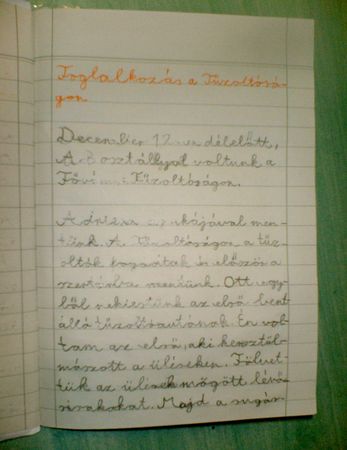 Foglalkozás a Tűzoltósá-
gon
December 12-en délelőtt,
A osztállyal voltunk a
Tűzoltóságon.
Adriena munkájával men-
tünk. A Tűzoltóságon a tűz
oltók fogadtak és először a
szertárba mentünk. Ott egy-
ből nekiestünk az első bent
álló tűzoltóautónak. Én vol-
tam az első, aki keresztül-
mászott a üléseken. Fölvet-
tük az ülések mögött lévő
sisakokat. Majd a sugár-